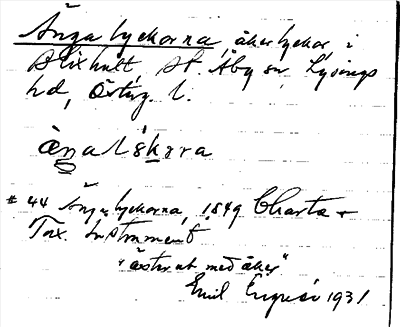 Ängalyckorna, åkerlyckor, i
Blixhult, St. Åby sn, Lysings
hd, Östg. l.
# 44 Ängalyckorna, 1849 Charta +
Tax. Instrument
"öster ut med åker"
Emil 1931